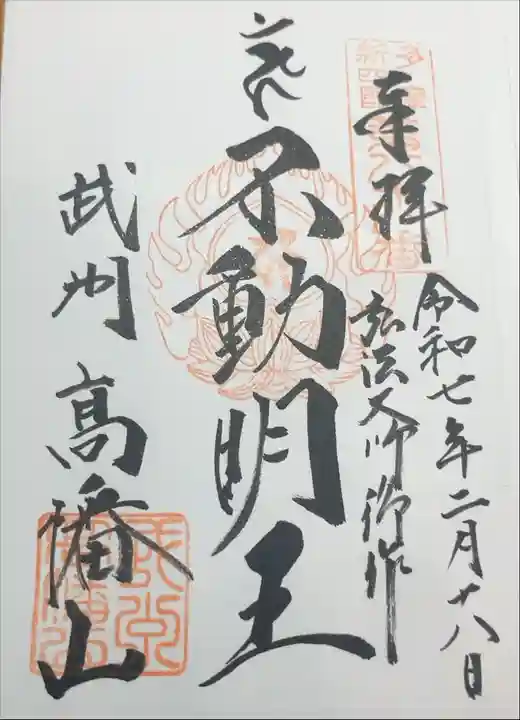 奉拝
令和七年二月十八日
弘法大師御作
不動明王
武州
高幡山